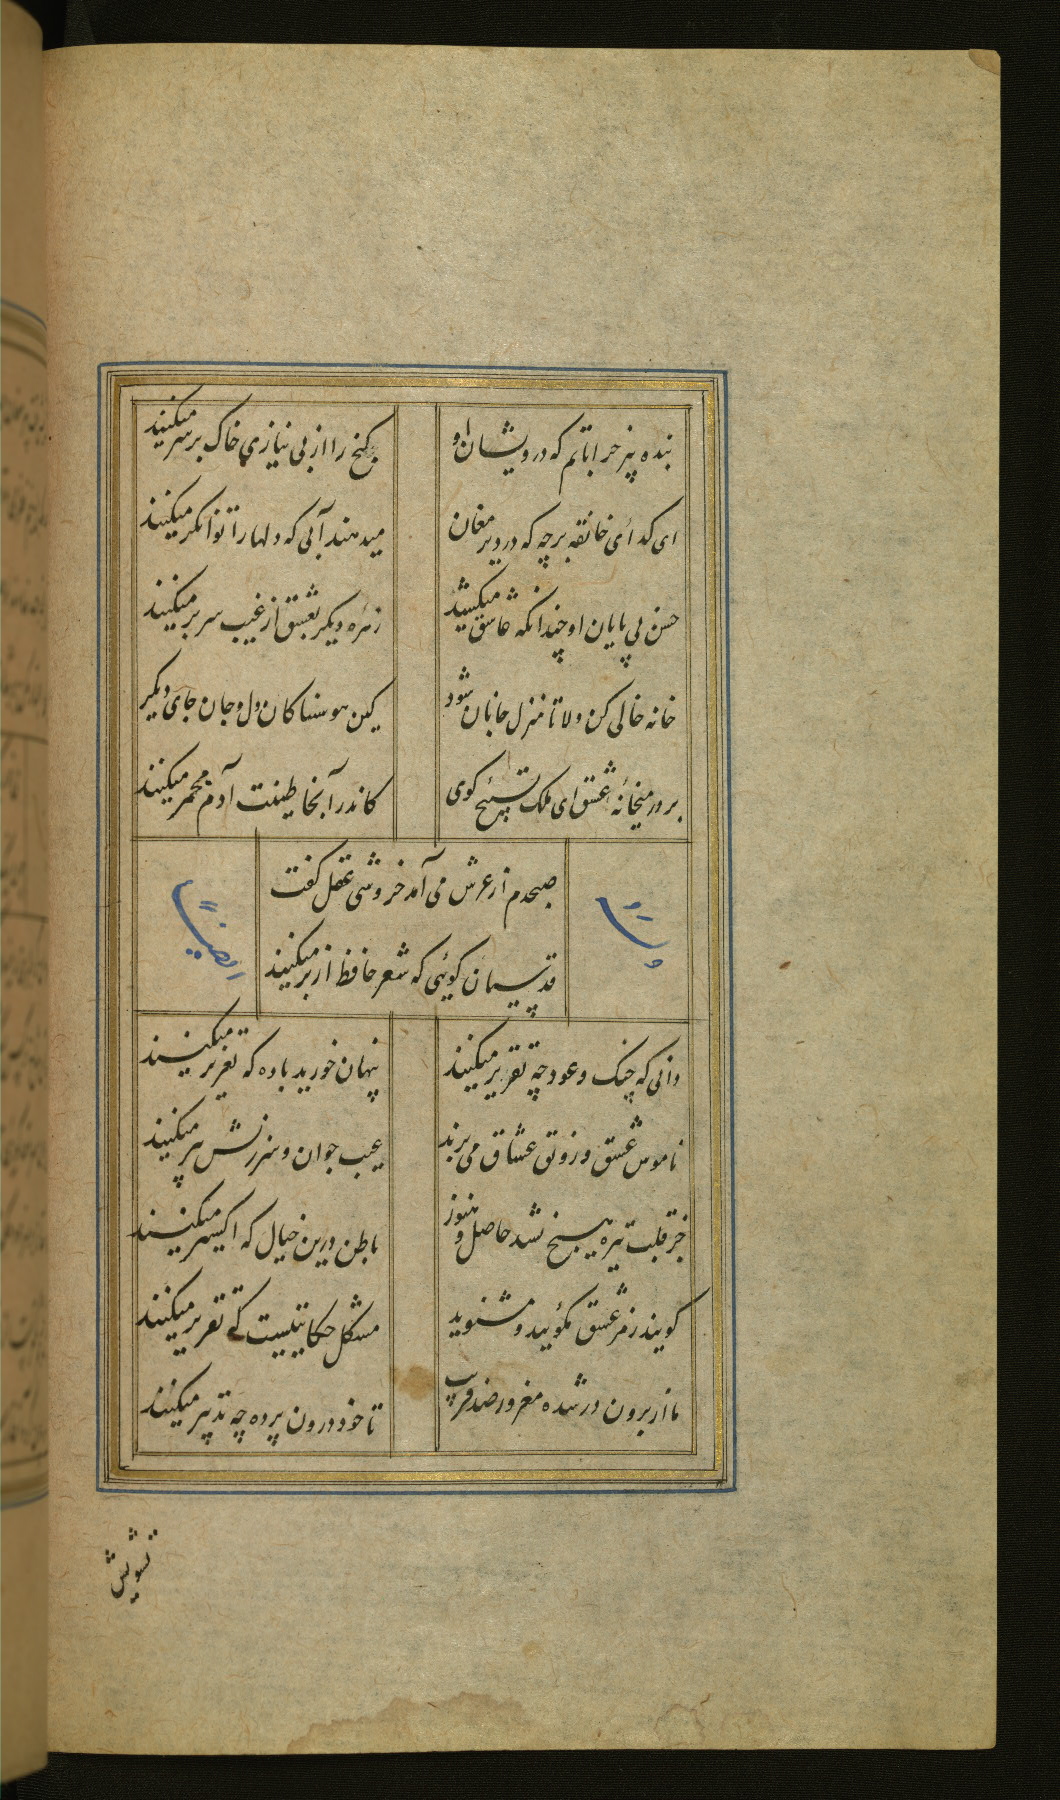 بنده پیر خراباتم که درویشان او
گنج را از بی نیازی خاک بر سر میکنند
ای گدای خانقه برجه که در دیر مغان
میدهند آبی که دلها را توانگر میکنند
حسن بی پایان او چندانکه عاشق میکشد
زمره دیگر بعشق از غیب سر بر میکنند
خانه خالی کن دلا تا منزل جانان شود
کین هوسناکان دل و جان جای دیگر
بر در میخانهٔ عشق ای ملک تسبیح گوی
کاندر آنجا طینت آدم مخمر میکنند
صبحدم از عرش می آمد خروشی عقل گفت
قدسیان گوئی که شعر حافظ از بر میکنند
وله ایضاً
دانی که چنگ و عود چه تقریر میکنند
پنهان خورید باده که تعزیر میکنند
ناموس عشق و رونق عشاق می برند
عیب جوان و سرزنش پیر میکنند
جز قلب تیره هیچ نشد حاصل و هنوز
باطل درین خیال که اکسیر میکنند
گویند رمز عشق مگوئید و مشنوید
مشکل حکایتیست که تقریر میکنند
ما از برون در شده مغرور صد فریب
تا خود درون پرده چه تدبیر میکنند
تشویش